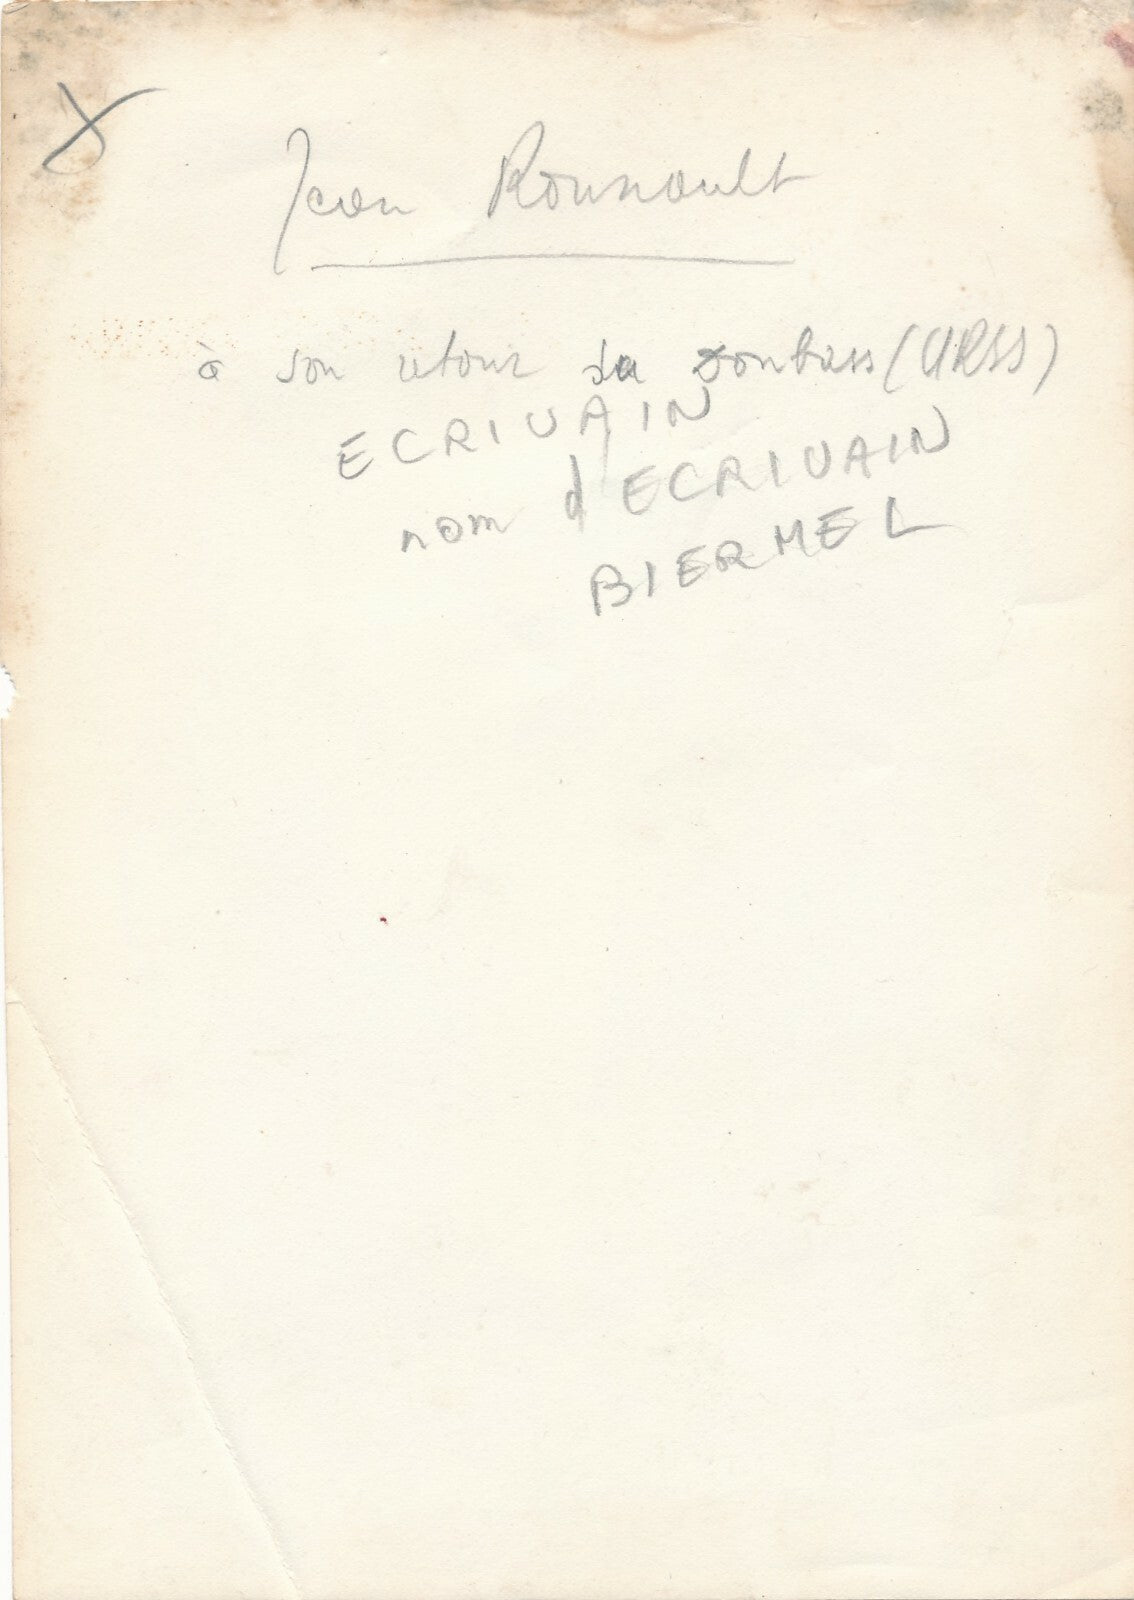 Jean Rounault
à son retour du Donbass (URSS)
ECRIVAIN
nom d'ECRIVAIN
BIERMEL